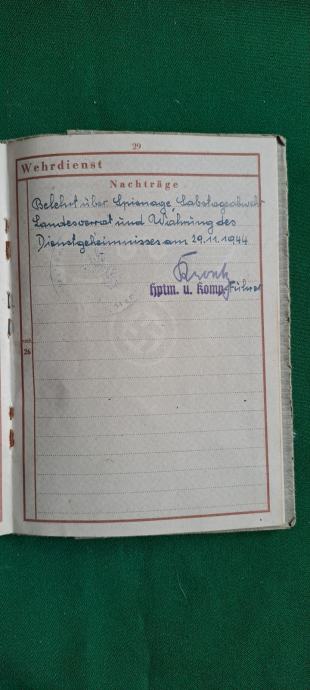 29
Wehrdienst
Nachträge
Belehrt über Spionage, Sabotageabwehr
Landesverrat und Wahrung des
Dienstgeheimnisses am 29.11.1944.
Hptm. u. Komp. Führer
26